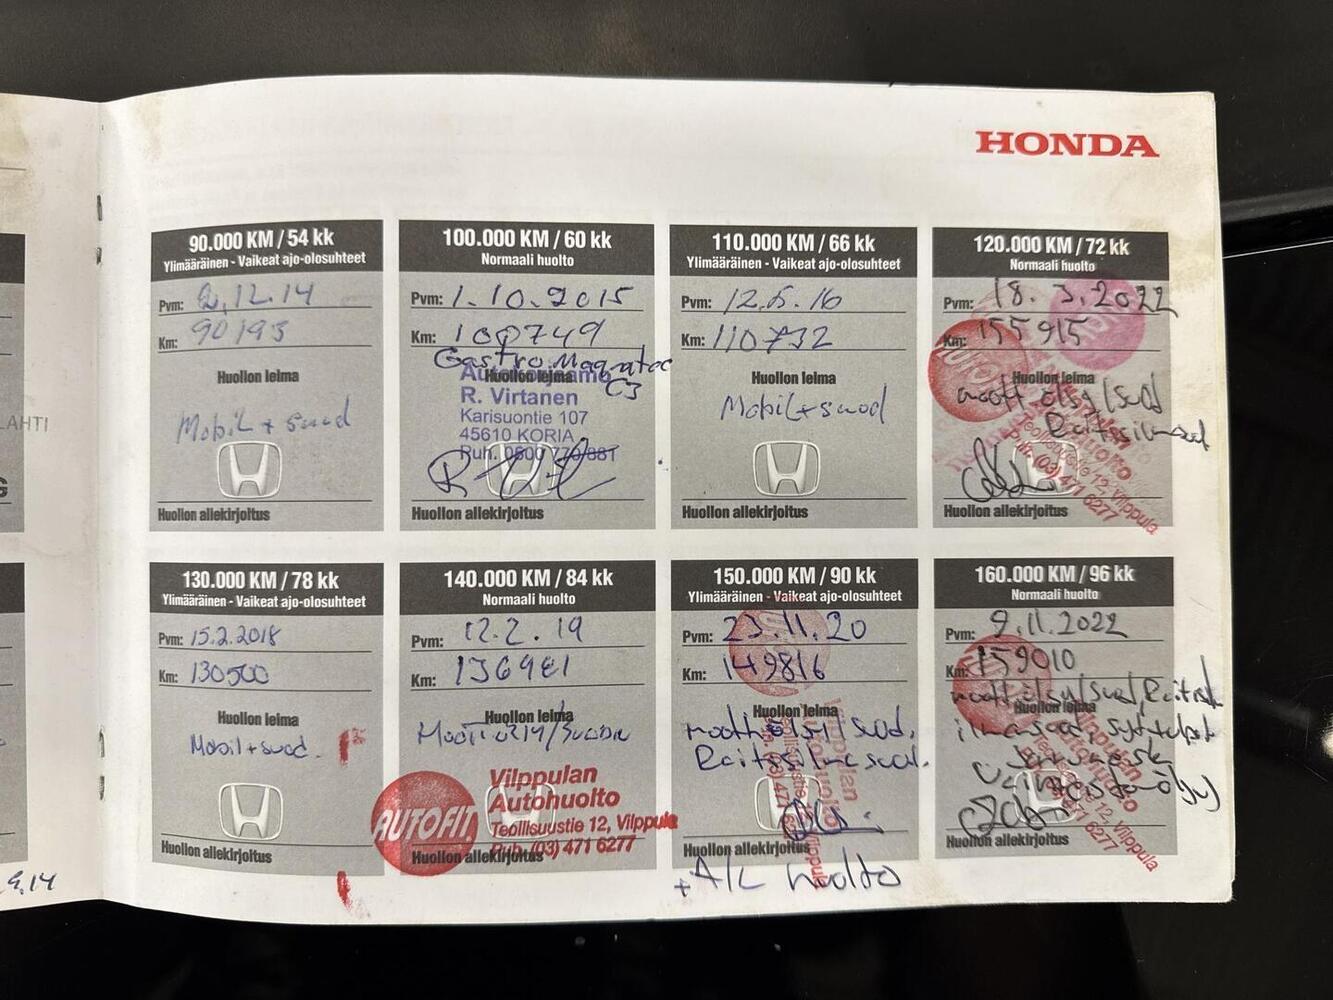 HONDA
90.000 KM / 54 kk
Ylimääräinen - Vaikeat ajo-olosuhteet
Pvm: 2.12.14
Km: 90193
Huollon leima
Mobil + suod
Huollon allekirjoitus
100.000 KM / 60 kk
Normaali huolto
Pvm: 1.10.2015
Km: 100749
Castrol Magnatec
C3
Huollon leima
R. Virtanen
Karisuontie 107
45610 KORIA
Puh. 0600 770 881
Huollon allekirjoitus
110.000 KM / 66 kk
Ylimääräinen - Vaikeat ajo-olosuhteet
Pvm: 12.5.16
Km: 110732
Huollon leima
Mobil + suod
Huollon allekirjoitus
120.000 KM / 72 kk
Normaali huolto
Pvm: 18.3.2022
Km: 155915
Huollon leima
moott.öljy/suod
Raitisilmasuod
Teollisuustie 12, Vilppula
Puh. (03) 471 6277
Huollon allekirjoitus
130.000 KM / 78 kk
Ylimääräinen - Vaikeat ajo-olosuhteet
Pvm: 15.2.2018
Km: 130500
Huollon leima
Mobil + suod.
Huollon allekirjoitus
140.000 KM / 84 kk
Normaali huolto
Pvm: 12.2.19
Km: 136981
Huollon leima
AUTOFIT
Vilppulan
Autohuolto
Teollisuustie 12, Vilppula
Puh. (03) 471 6277
Huollon allekirjoitus
150.000 KM / 90 kk
Ylimääräinen - Vaikeat ajo-olosuhteet
Pvm: 23.11.20
Km: 149816
Huollon leima
moott.öljy/suod.
Raitisilmasuod.
Vilppulan
Autohuolto
Huollon allekirjoitus
+ A/C huolto
160.000 KM / 96 kk
Normaali huolto
Pvm: 9.11.2022
Km: 159010
moott.öljy/suod, Raitisi
Huollon leima
ilmasuod, syt.tulpat
Jarruneste
Vilppulan
Autohuolto
Teollisuustie 12, Vilppula
Puh. (03) 471 6277
Huollon allekirjoitus
LAHTI
9.14